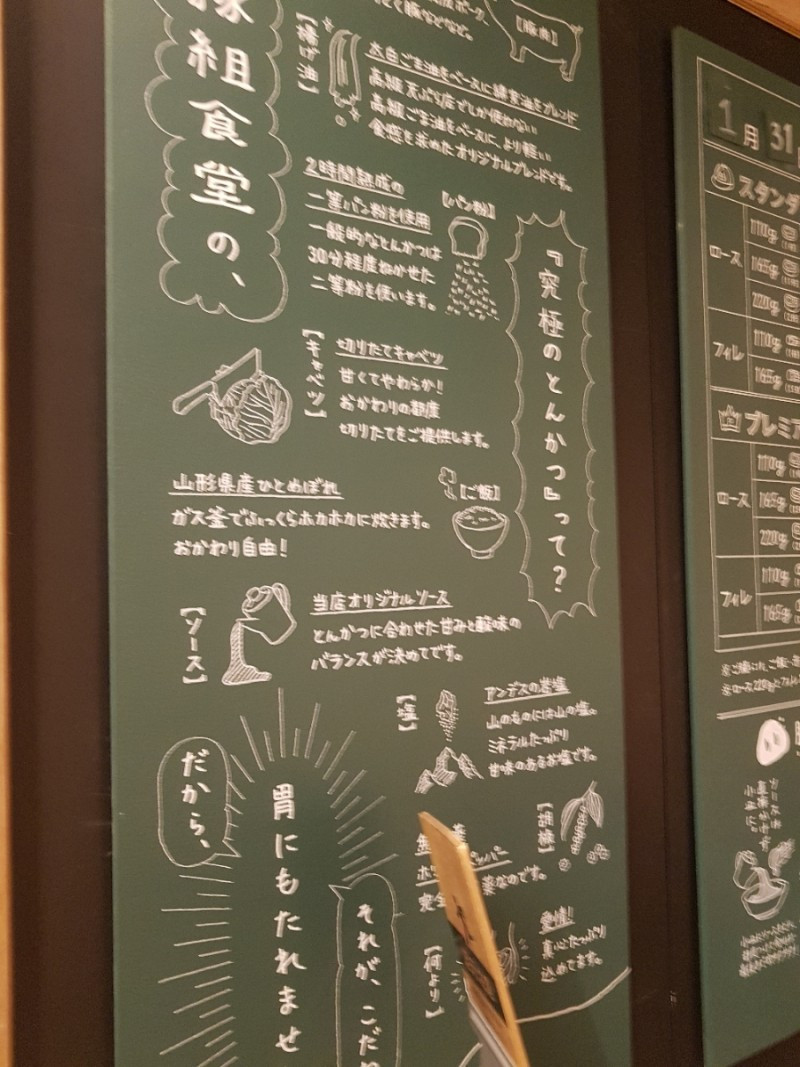 豚組食堂の、
『究極のとんかつ』って?
【豚肉】
【揚げ油】
太白ごま油をベースに綿実油をブレンド
高級天ぷら店でしか使わない
高級ごま油をベースに、より軽い
食感を求めたオリジナルブレンドです。
【パン粉】
2時間熟成の
二等パン粉を使用
一般的なとんかつは
30分程度ねかせた
二等粉を使います。
【キャベツ】
切りたてキャベツ
甘くてやわらか!
おかわりの都度
切りたてをご提供します。
【ご飯】
山形県産ひとめぼれ
ガス釜でふっくらホカホカに炊きます。
おかわり自由!
【ソース】
当店オリジナルソース
とんかつに合わせた甘みと酸味の
バランスが決めてです。
【塩】
アンデスの岩塩
山のものには山の塩。
ミネラルたっぷり
甘味のあるお塩です。
【胡椒】
ペッパー
完全
薬なのです。
【何より】
愛情!
真心たっぷり
込めてます。
だから、
胃にもたれませ
それが、こだわ
1月31
スタンダ
ロース
110g
165g
220g
フィレ
110g
165g
プレミア
ロース
110g
165g
220g
フィレ
110g
165g